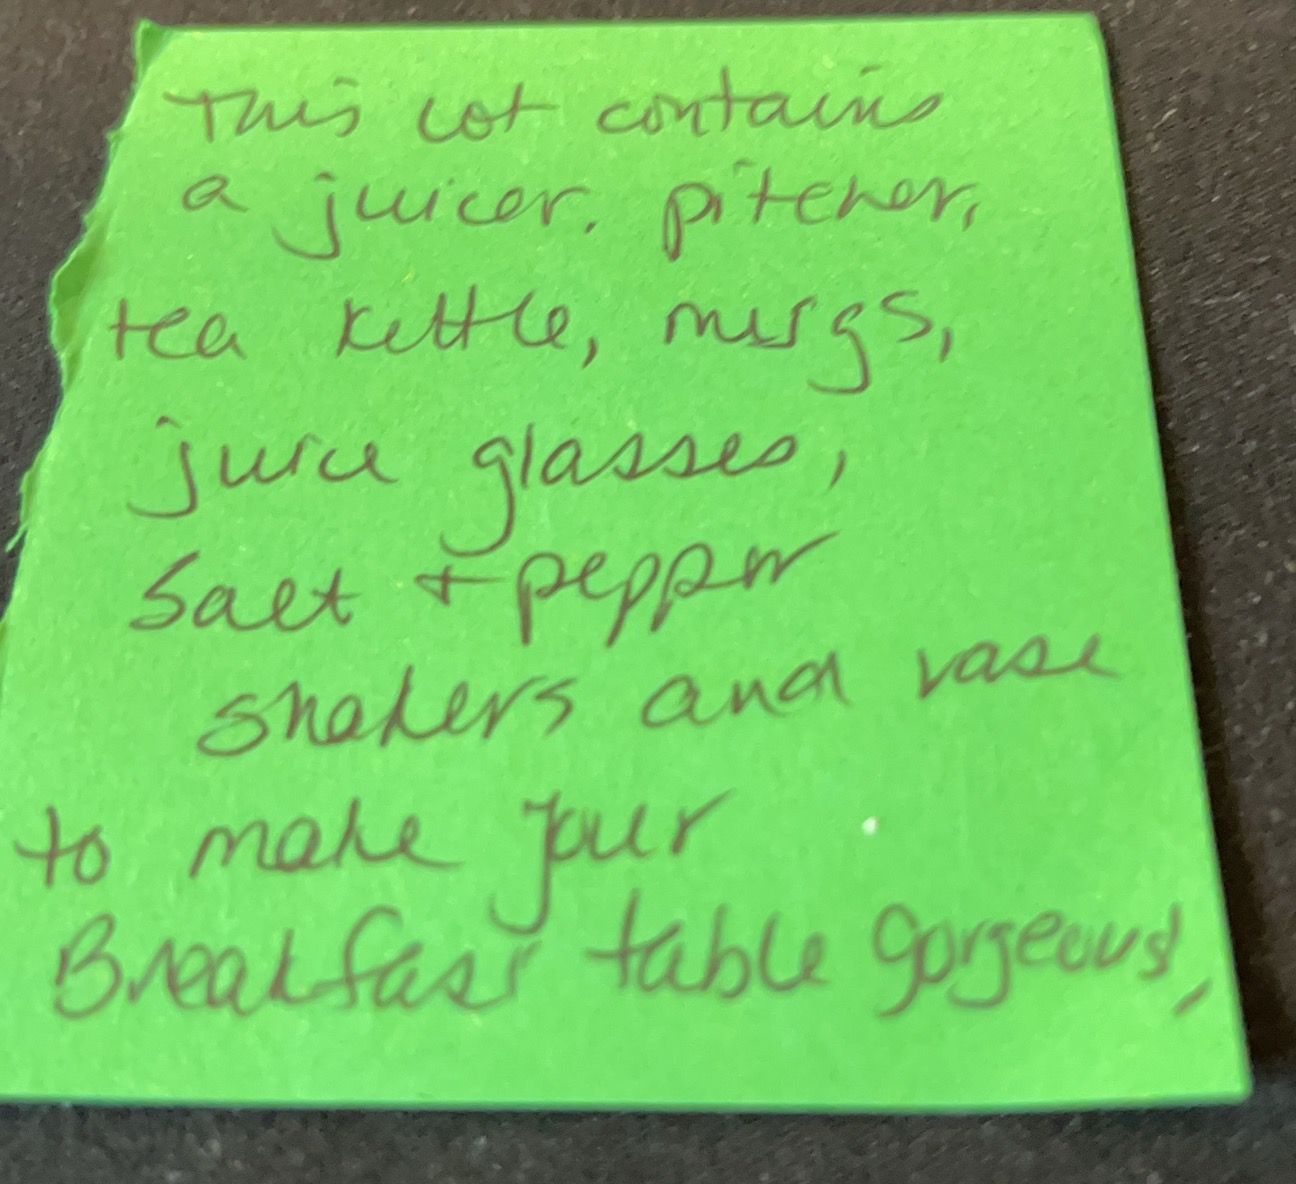 This lot contains
a juicer. pitcher,
tea kettle, mugs,
juice glasses,
Salt + pepper
shakers and vase
to make your
Breakfast table gorgeous,